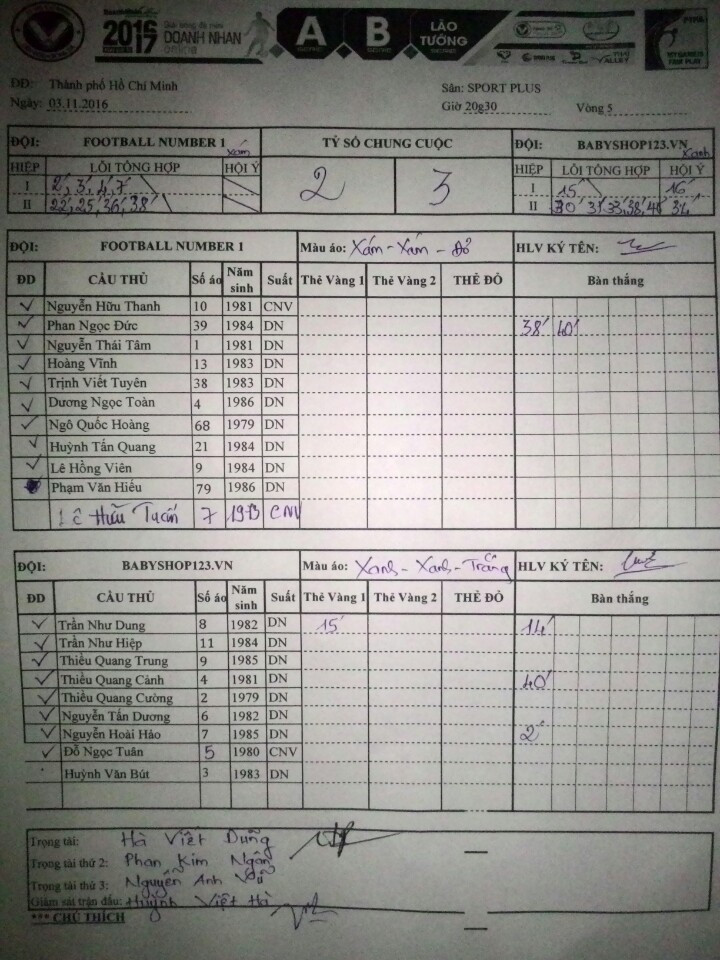 2016 2017 DOANH NHAN A B LÃO TƯỚNG
ĐĐ: Thành phố Hồ Chí Minh Sân: SPORT PLUS
Ngày: 03.11.2016 Giờ 20g30 Vòng 5
ĐỘI: FOOTBALL NUMBER 1 xám TỶ SỐ CHUNG CUỘC ĐỘI: BABYSHOP123.VN xanh
HIỆP LỖI TỔNG HỢP HỘI Ý 2 3 HIỆP LỖI TỔNG HỢP HỘI Ý
I 2', 3', 4', 7' I 15' 16'
II 22', 25', 36', 38' II 30' 34'
ĐỘI: FOOTBALL NUMBER 1 Màu áo: Xám - Xám - Đỏ HLV KÝ TÊN:
ĐD CẦU THỦ Số áo Năm sinh Suất Thẻ Vàng 1 Thẻ Vàng 2 THẺ ĐỎ Bàn thắng
Nguyễn Hữu Thanh 10 1981 CNV
Phan Ngọc Đức 39 1984 DN 38' 40'
Nguyễn Thái Tâm 1 1981 DN
Hoàng Vĩnh 13 1983 DN
Trịnh Viết Tuyên 38 1983 DN
Dương Ngọc Toàn 4 1986 DN
Ngô Quốc Hoàng 68 1979 DN
Huỳnh Tấn Quang 21 1984 DN
Lê Hồng Viên 9 1984 DN
Phạm Văn Hiếu 79 1986 DN
Lê Hữu Tuấn 7 1973 CNV
ĐỘI: BABYSHOP123.VN Màu áo: Xanh - Xanh - Trắng HLV KÝ TÊN:
ĐD CẦU THỦ Số áo Năm sinh Suất Thẻ Vàng 1 Thẻ Vàng 2 THẺ ĐỎ Bàn thắng
Trần Như Dung 8 1982 DN 15' 14'
Trần Như Hiệp 11 1984 DN
Thiều Quang Trung 9 1985 DN
Thiều Quang Cảnh 4 1981 DN 40'
Thiều Quang Cường 2 1979 DN
Nguyễn Tấn Dương 6 1982 DN
Nguyễn Hoài Hảo 7 1985 DN 2'
Đỗ Ngọc Tuân 5 1980 CNV
Huỳnh Văn Bút 3 1983 DN
Trọng tài: Hà Việt Dũng
Trọng tài thứ 2: Phan Kim Ngân
Trọng tài thứ 3: Nguyễn Anh Vũ
Giám sát trận đấu: Huỳnh Việt Hà
*** CHÚ THÍCH